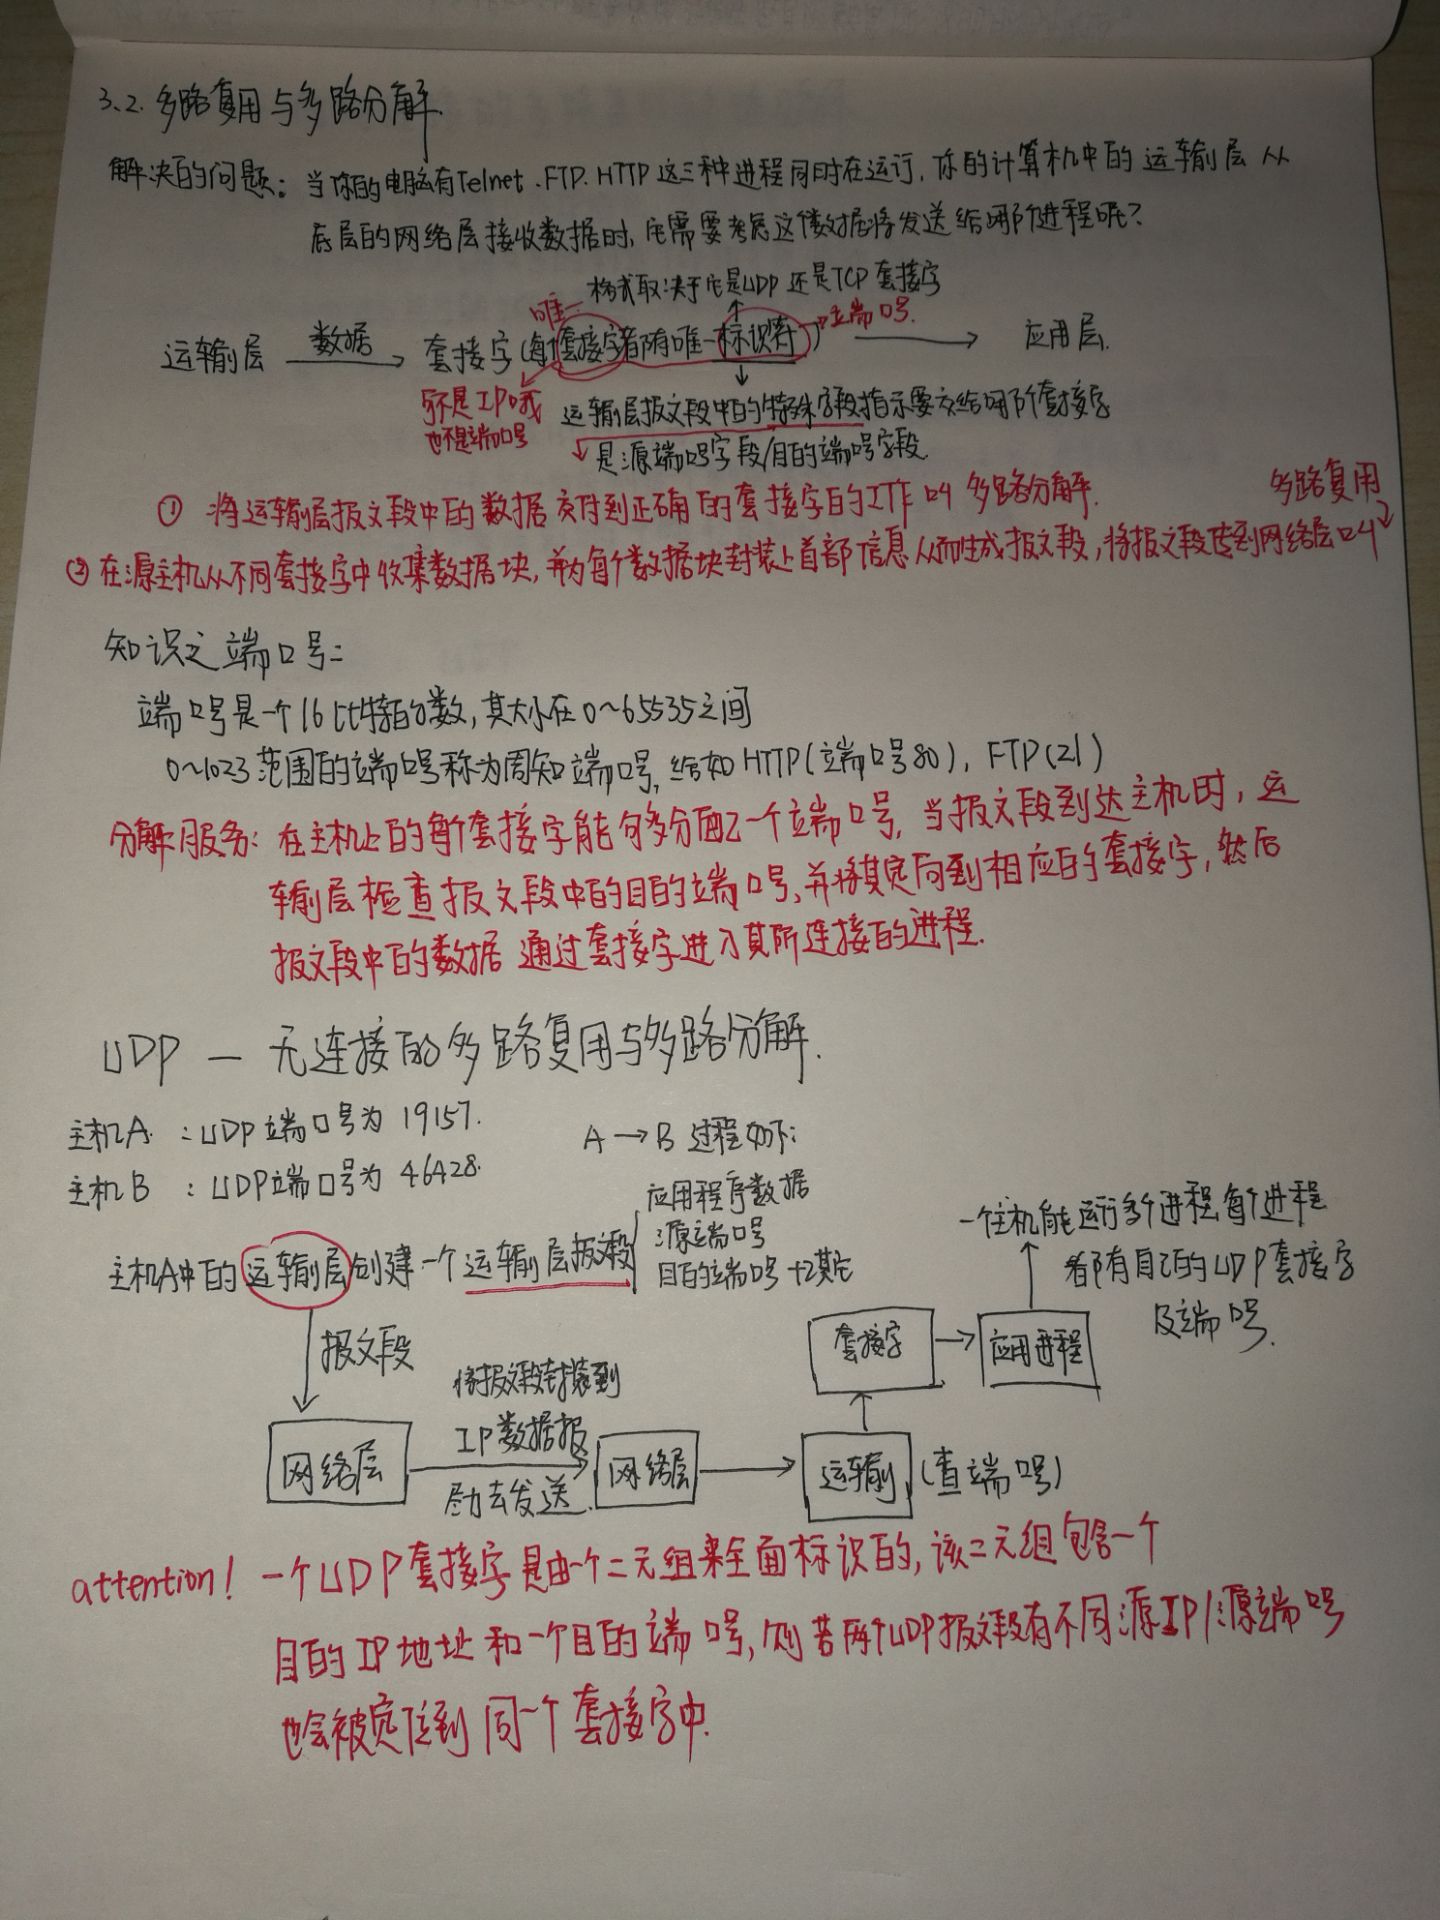 3.2. 多路复用与多路分解.
解决的问题: 当你的电脑有Telnet.FTP.HTTP这三种进程同时在运行,你的计算机中的运输层从
底层的网络层接收数据时,它需要考虑这个数据将发送给哪个进程呢?
格式取决于它是UDP还是TCP套接字
唯一
端口号.
运输层 数据 套接字(每个套接字都有唯一标识符) 应用层.
不是IP哦
也不是端口号
运输层报文段中的特殊字段指示要交给哪个套接字
是源端口号字段/目的端口号字段.
① 将运输层报文段中的数据交付到正确的套接字的工作叫 多路分解.
多路复用
② 在源主机从不同套接字中收集数据块,并为每个数据块封装上首部信息从而生成报文段,将报文段传到网络层叫
知识之端口号:
端口号是一个16比特的数,其大小在0~65535之间
0~1023范围的端口号称为周知端口号, 如HTTP(端口号80), FTP(21)
分解服务: 在主机上的每个套接字能够分配一个端口号, 当报文段到达主机时, 运
输层检查报文段中的目的端口号,并将其定向到相应的套接字, 然后
报文段中的数据通过套接字进入其所连接的进程.
UDP — 无连接的多路复用与多路分解.
主机A : UDP端口号为 19157.
主机B : UDP端口号为 46428.
A → B 过程如下:
主机A中的运输层创建一个运输层报文段
应用程序数据
源端口号
目的端口号 +其它
一个主机能运行多个进程,每个进程
都有自己的UDP套接字
及端口号.
报文段
套接字 应用进程
将报文段封装到
IP数据报
尽力去发送.
网络层 网络层 运输 (查端口号)
attention! 一个UDP套接字是由一个二元组来全面标识的, 该二元组包含一个
目的IP地址和一个目的端口号, 则若两个UDP报文段有不同源IP/源端口号
也会被定位到同一个套接字中.